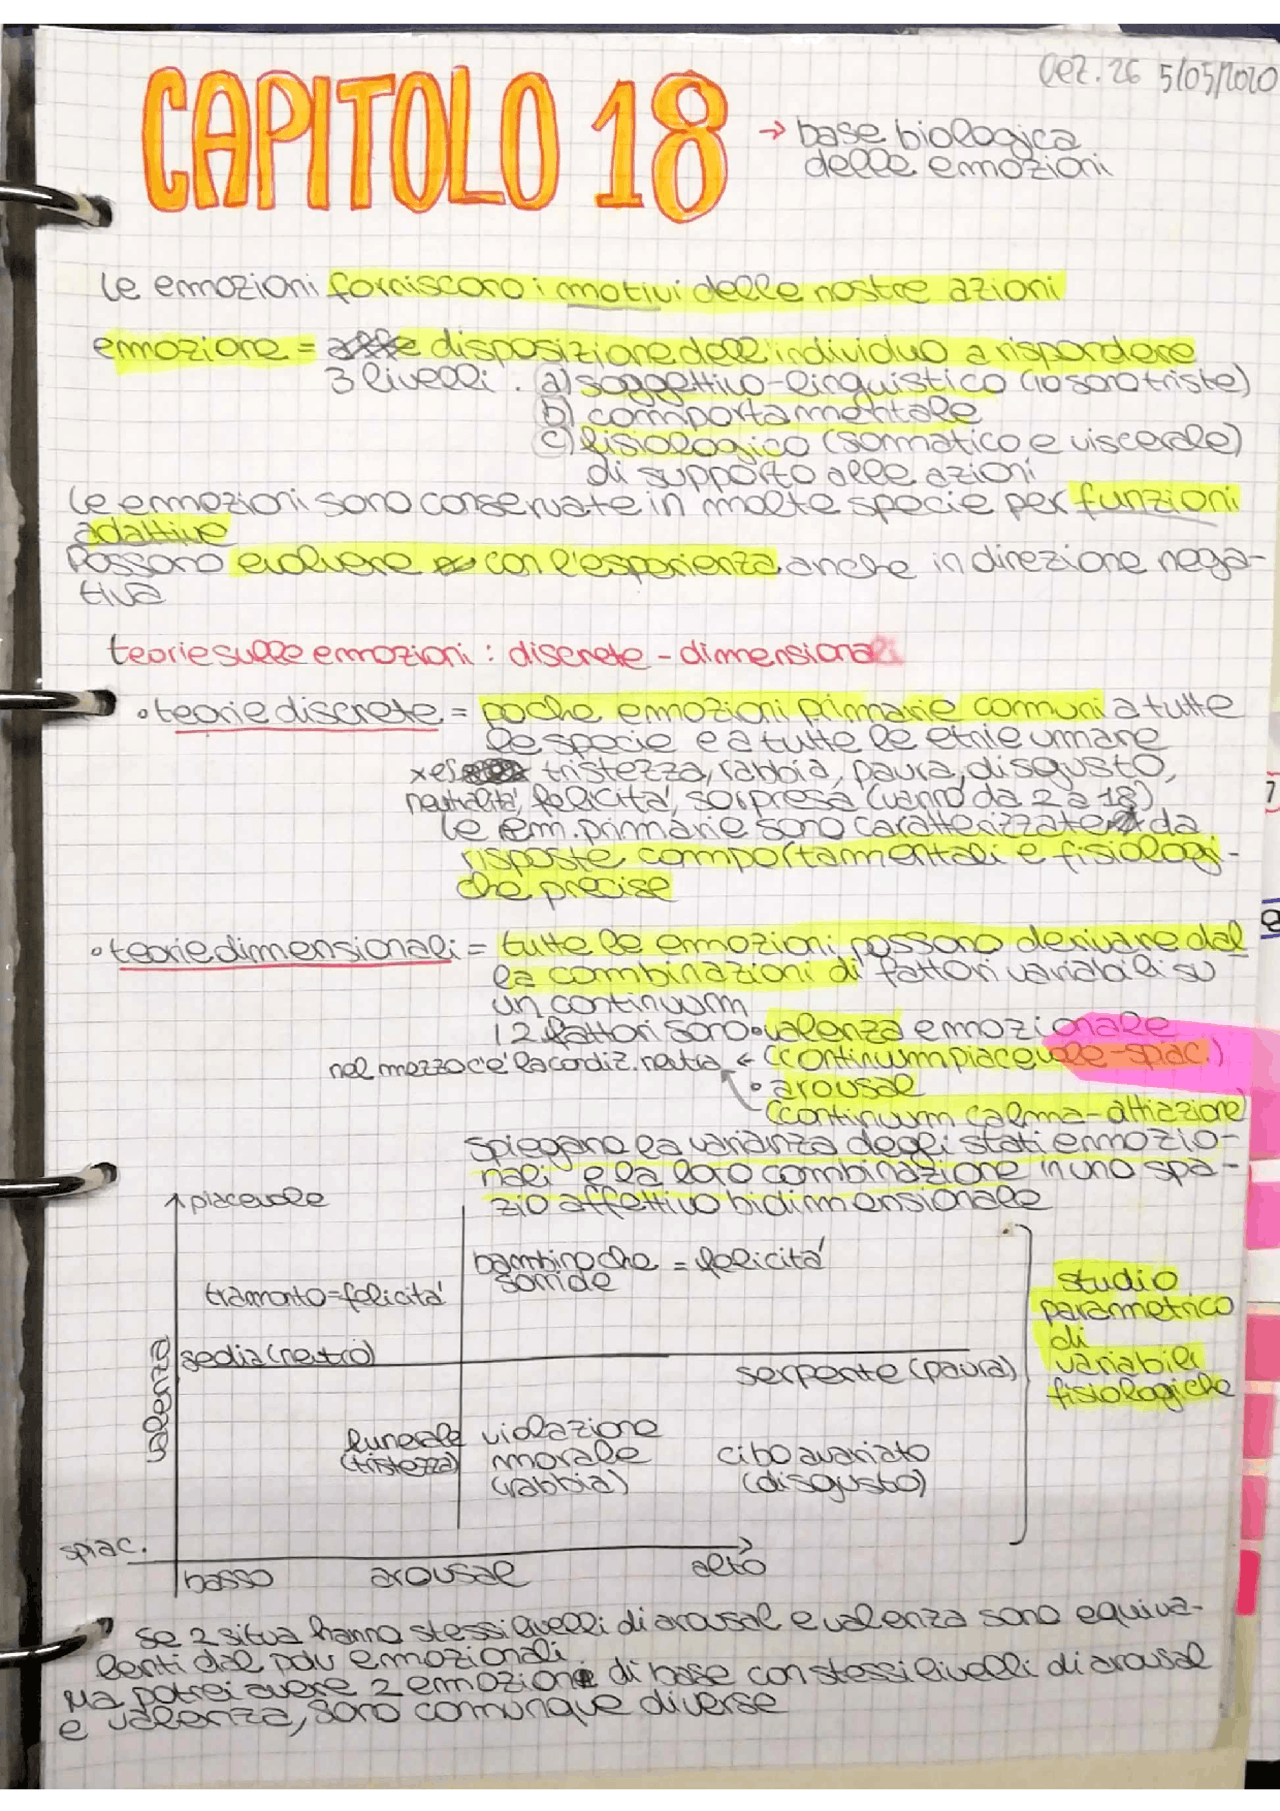 Lez. 26 5/05/2020
CAPITOLO 18
→ base biologica
delle emozioni
Le emozioni forniscono i motivi delle nostre azioni
emozione = disposizione dell'individuo a rispondere
3 livelli. a) soggettivo-linguistico (io sono triste)
b) comportamentale
c) fisiologico (somatico e viscerale)
di supporto alle azioni
Le emozioni sono conservate in molte specie per funzioni
adattive
Possono evolvere con l'esperienza anche in direzione nega-
tiva
teorie sulle emozioni: discrete - dimensionali
• teorie discrete = poche emozioni primarie comuni a tutte
le specie e a tutte le etnie umane
x es tristezza, rabbia, paura, disgusto,
neutralità, felicità, sorpresa (vanno da 2 a 18)
Le em. primarie sono caratterizzate da
risposte comportamentali e fisiologi-
che precise
• teorie dimensionali = tutte le emozioni possono derivare dal
la combinazioni di fattori variabili su
un continuum
I 2 fattori sono • valenza emozionale
nel mezzo c'è la condiz. neutra ← (continuum piacevole-spiac.)
• arousal
(continuum calma-attiazione)
spiegano la varianza degli stati emozio-
nali e la loro combinazione in uno spa-
zio affettivo bidimensionale
piacevole
bambino che = felicità
sorride
tramonto = felicità
studio
parametrico
di
variabili
fisiologiche
valenza
sedia (neutro)
serpente (paura)
funerale
(tristezza)
violazione
morale
(rabbia)
cibo avariato
(disgusto)
spiac.
basso arousal alto
se 2 situa hanno stessi livelli di arousal e valenza sono equiva-
lenti dal pdv emozionali.
Ma potrei avere 2 emozione di base con stessi livelli di arousal
e valenza, sono comunque diverse
7